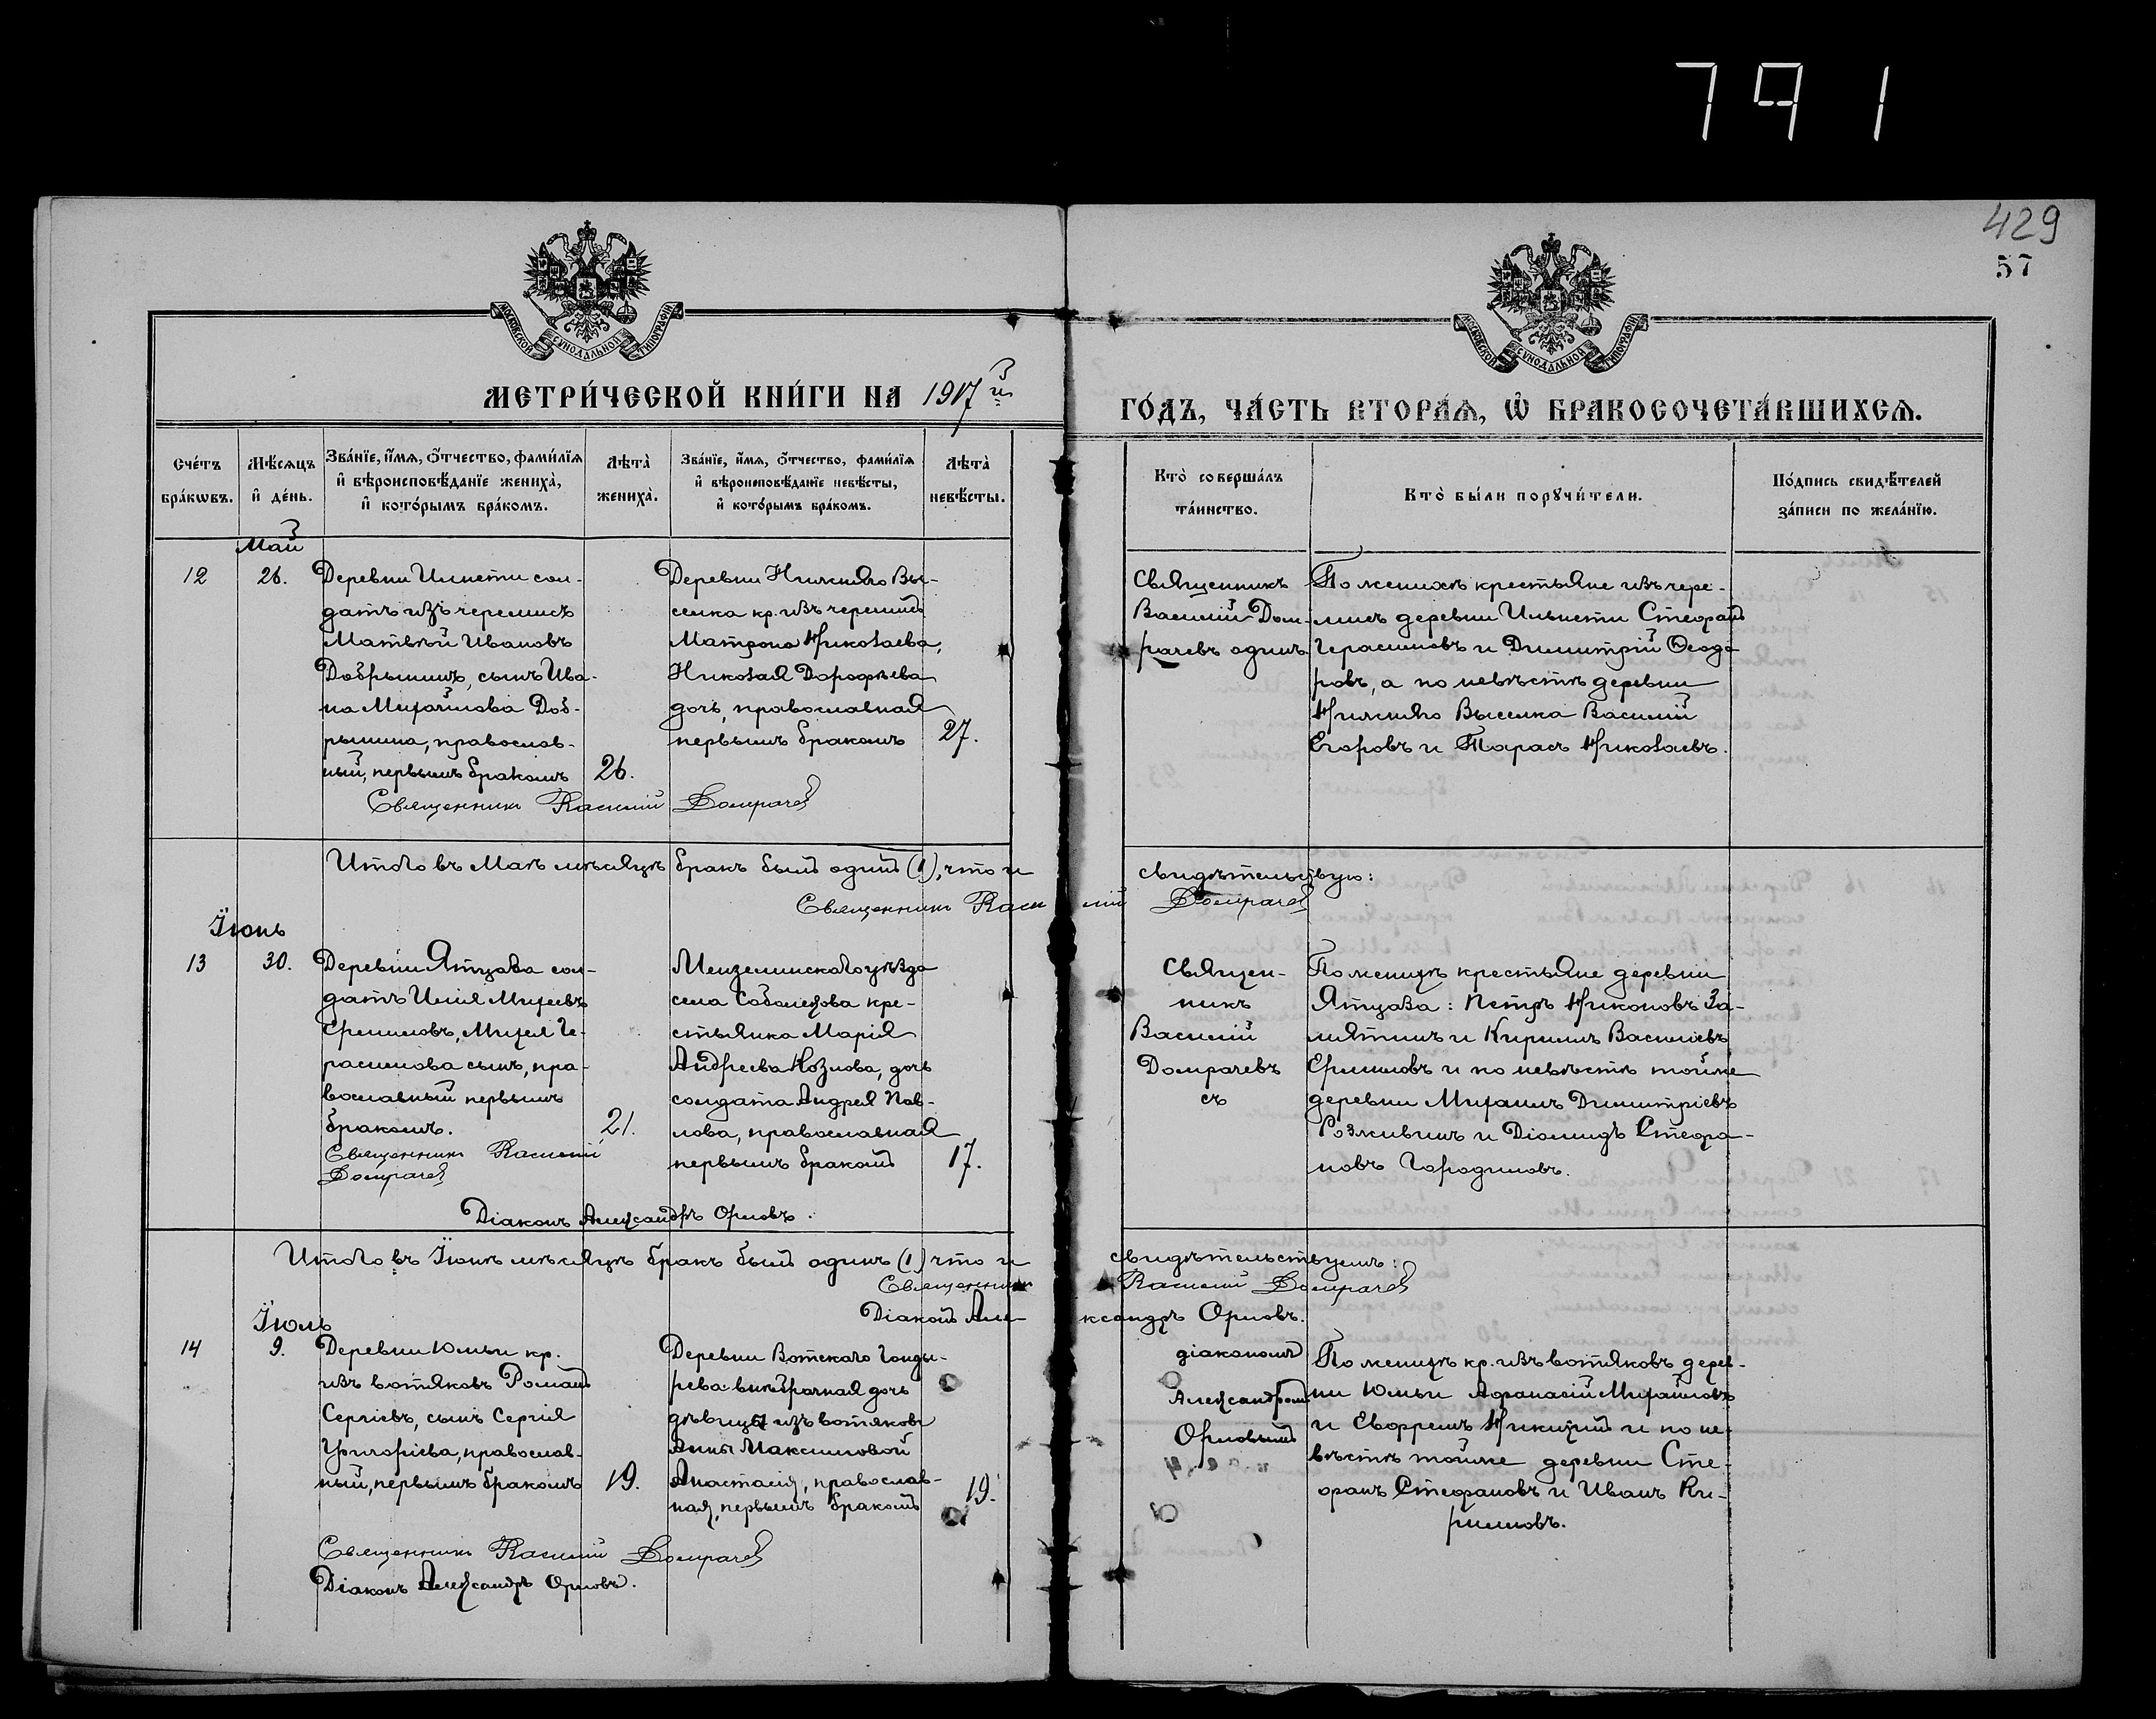 791
429
57
МОСКОВСКОЙ СѴНОДАЛЬНОЙ ТИПОГРАФІИ
МОСКОВСКОЙ СѴНОДАЛЬНОЙ ТИПОГРАФІИ
МЕТРИ́ЧЕСКОЙ КНИ́ГИ НА 1917й
ГО́ДЪ, ЧА́СТЬ ВТОРА́Ѧ, Ѽ БРАКОСОЧЕТА́ВШИХСѦ.
Сче́тъ бра́кωвъ.
Мѣ́сѧцъ и҆ де́нь.
Зва́нїе, и҆́мѧ, ѻ҆́тчество, фами́лїѧ и҆ вѣроисповѣ́данїе жениха̀, и҆ кото́рымъ бра́комъ.
Лѣта̀ жениха̀.
Зва́нїе, и҆́мѧ, ѻ҆́тчество, фами́лїѧ и҆ вѣроисповѣ́данїе невѣ́сты, и҆ кото́рымъ бра́комъ.
Лѣта̀ невѣ́сты.
Кто̀ соверша́лъ та́инство.
Кто̀ бы́ли порꙋчи́тели.
По́дпись свидѣ́телей за́писи по жела́нїю.
Май
12
26.
Деревни Ильнети сол-
датъ изъ черемисъ
Матвѣй Ивановъ
Добрынинъ, сынъ Ива-
на Михайлова Доб-
рынина, православ-
ный, первымъ бракомъ
26.
Деревни Нижняго Вы-
селка кр. изъ черемисъ
Матрона Николаева,
Николая Дорофѣева
дочь, православная
первымъ бракомъ
27.
Священникъ
Василій Дом-
рачевъ одинъ
По женихѣ крестьяне изъ чере-
мисъ деревни Ильнети Стефанъ
Герасимовъ и Димитрій Ѳеодо
ровъ, а по невѣстѣ деревни
Нижняго Выселка Василій
Егоровъ и Тарасъ Николаевъ.
Священникъ Василій Домрачевъ
Итого въ Маѣ мѣсяцѣ бракъ былъ одинъ (1), что и свидѣтельствую:
Священникъ Василій Домрачевъ
Іюнь
13
30.
Деревни Ятцаза сол-
датъ Илія Михеевъ
Ермиловъ, Михея Ге-
расимова сынъ, пра-
вославный первымъ
бракомъ.
21.
Священникъ Василій
Домрачевъ
Мензелинскаго уѣзда
села Соболекова кре-
стьянка Марія
Андреева Козлова, дочь
солдата Андрея Пав-
лова, православная
первымъ бракомъ
17.
Священ-
никъ
Василій
Домрачевъ
съ
По женихѣ крестьяне деревни
Ятцаза: Петръ Никоновъ За-
мятинъ и Кириллъ Василіевъ
Ермиловъ и по невѣстѣ тойже
деревни Михаилъ Димитріевъ
Розживинъ и Діомидъ Стефа-
новъ Городиловъ.
Діаконъ Александръ Орловъ.
Итого въ Іюнѣ мѣсяцѣ бракъ былъ одинъ (1) что и свидѣтельствуемъ:
Священникъ Василій Домрачевъ
Діаконъ Александръ Орловъ.
Іюль
14
9.
Деревни Юмьи кр.
изъ вотяковъ Романъ
Сергіевъ, сынъ Сергія
Григоріева, православ-
ный, первымъ бракомъ
19.
Деревни Вотскаго Гонды-
рева внѣбрачная дочь
дѣвицы изъ вотяковъ
Анны Максимовой
Анастасія, православ-
ная, первымъ бракомъ
19.
діакономъ
Александромъ
Орловымъ
По женихѣ кр. изъ вотяковъ дерев-
ни Юмьи Афанасій Михайловъ
и Евфремъ Никитинъ и по не-
вѣстѣ тойже деревни Сте-
фанъ Стефановъ и Иванъ Ки-
рилловъ.
Священникъ Василій Домрачевъ
Діаконъ Александръ Орловъ.